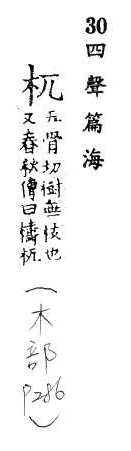 30 四聲篇海
杌
五骨切樹無枝也
又春秋傳曰檮杌
(木部 P286)